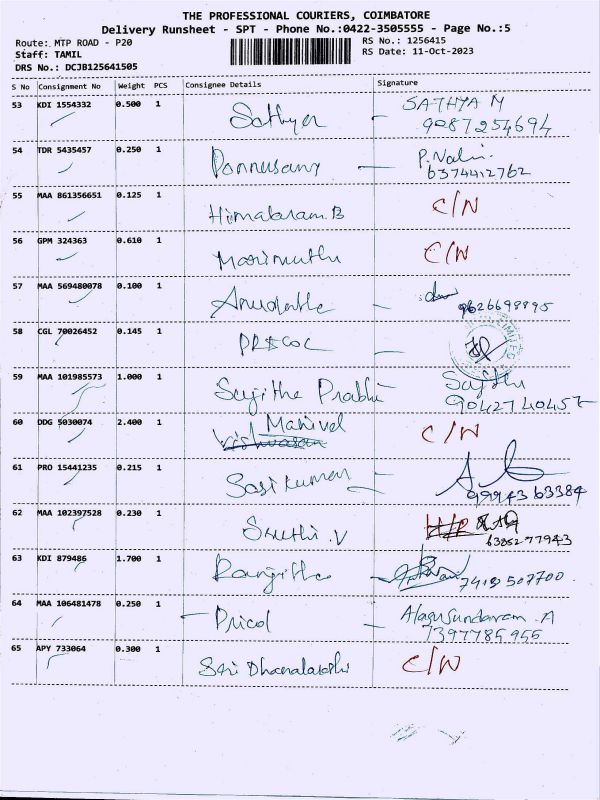 THE PROFESSIONAL COURIERS, COIMBATORE
Delivery Runsheet - SPT - Phone No.:0422-3505555 - Page No.:5
Route: MTP ROAD - P20
Staff: TAMIL
DRS No.: DCJB125641505
RS No.: 1256415
RS Date: 11-Oct-2023
S No Consignment No Weight PCS Consignee Details Signature
53 KDI 1554332 0.500 1 Sathya – SATHYA M
9087254694
54 TDR 5435457 0.250 1 Ponnusamy — P. Nali
6374412762
55 MAA 861356651 0.125 1 Himabaram.B C/N
56 GPM 324363 0.610 1 Marimuthu C/N
57 MAA 569480078 0.100 1 –
9626698895
58 CGL 70026452 0.145 1 PRICOL – LIMITED
59 MAA 101985573 1.000 1 Sajitha Prabhu – Sajitha
9042740457
60 DDG 5030074 2.400 1 Manivel C/N
61 PRO 15441235 0.215 1 Sasikumar –
9994363384
62 MAA 102397528 0.230 1 Sruthi.V
6385277943
63 KDI 879486 1.700 1 Ranjitha – 7418507700
64 MAA 106481478 0.250 1 – Pricol – Alagusundaram.A
7397785955
65 APY 733064 0.300 1 Sri Dhanalakshi C/N